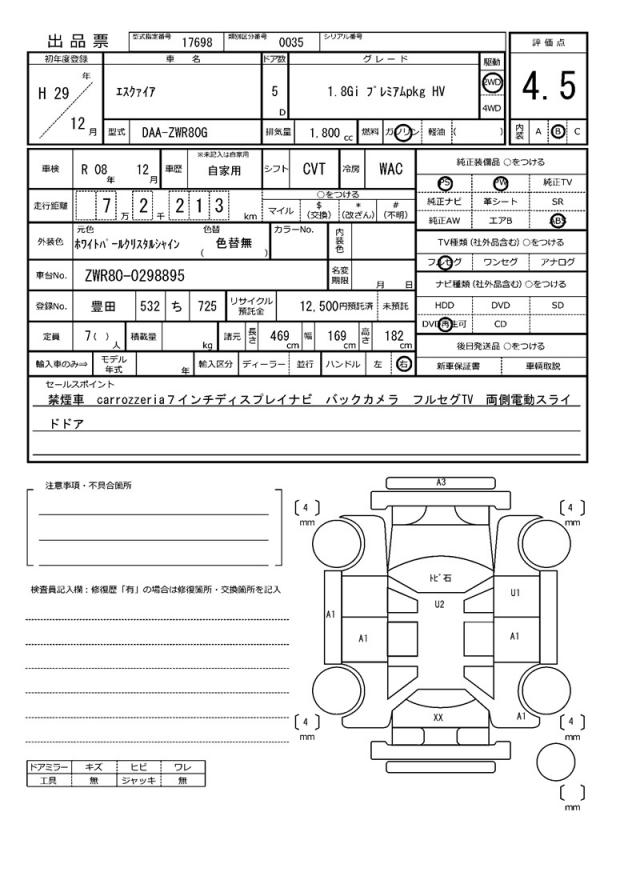 出品票 型式指定番号 17698 類別区分番号 0035 シリアル番号
評価点
4.5
内装 A B C
初年度登録 車名 ドア数 グレード 駆動
H 29 年 12 月
ｴｽｸｧｲｱ 5 D 1.8Gi ﾌﾟﾚﾐｱﾑpkg HV 2WD
4WD
型式 DAA-ZWR80G 排気量 1,800 cc 燃料 ガソリン 軽油 ( )
車検 R 08 年 12 月 車歴 ※未記入は自家用 自家用 シフト CVT 冷房 WAC
走行距離 7 万 2 千 2 1 3 km
○をつける
マイル $(交換) *(改ざん) #(不明)
外装色 元色 ﾎﾜｲﾄﾊﾟｰﾙｸﾘｽﾀﾙｼｬｲﾝ 色替 ( 色替無 ) カラーNo. 内装色
車台No. ZWR80-0298895 名変期限 月 日
登録No. 豊田 532 ち 725 リサイクル預託金 12,500円預託済 未預託
定員 7 ( ) 人 積載量 kg 諸元 長さ 469 cm 幅 169 cm 高さ 182 cm
輸入車のみ⇒ モデル年式 年 輸入区分 ディーラー 並行 ハンドル 左 右
純正装備品 ○をつける
PS PW 純正TV
純正ナビ 革シート SR
純正AW エアB ABS
TV種類 (社外品含む) ○をつける
フルセグ ワンセグ アナログ
ナビ種類 (社外品含む) ○をつける
HDD DVD SD
DVD再生可 CD
後日発送品 ○をつける
新車保証書 車輌取説
セールスポイント
禁煙車 carrozzeria７インチディスプレイナビ バックカメラ フルセグTV 両側電動スライ
ドドア
注意事項・不具合箇所
検査員記入欄：修復歴「有」の場合は修復箇所・交換箇所を記入
A3
4 mm
4 mm
ﾄﾋﾞ石
U2
U1
A1
A1
A1
XX
A1
4 mm
4 mm
mm
ドアミラー キズ ヒビ ワレ
工具 無 ジャッキ 無